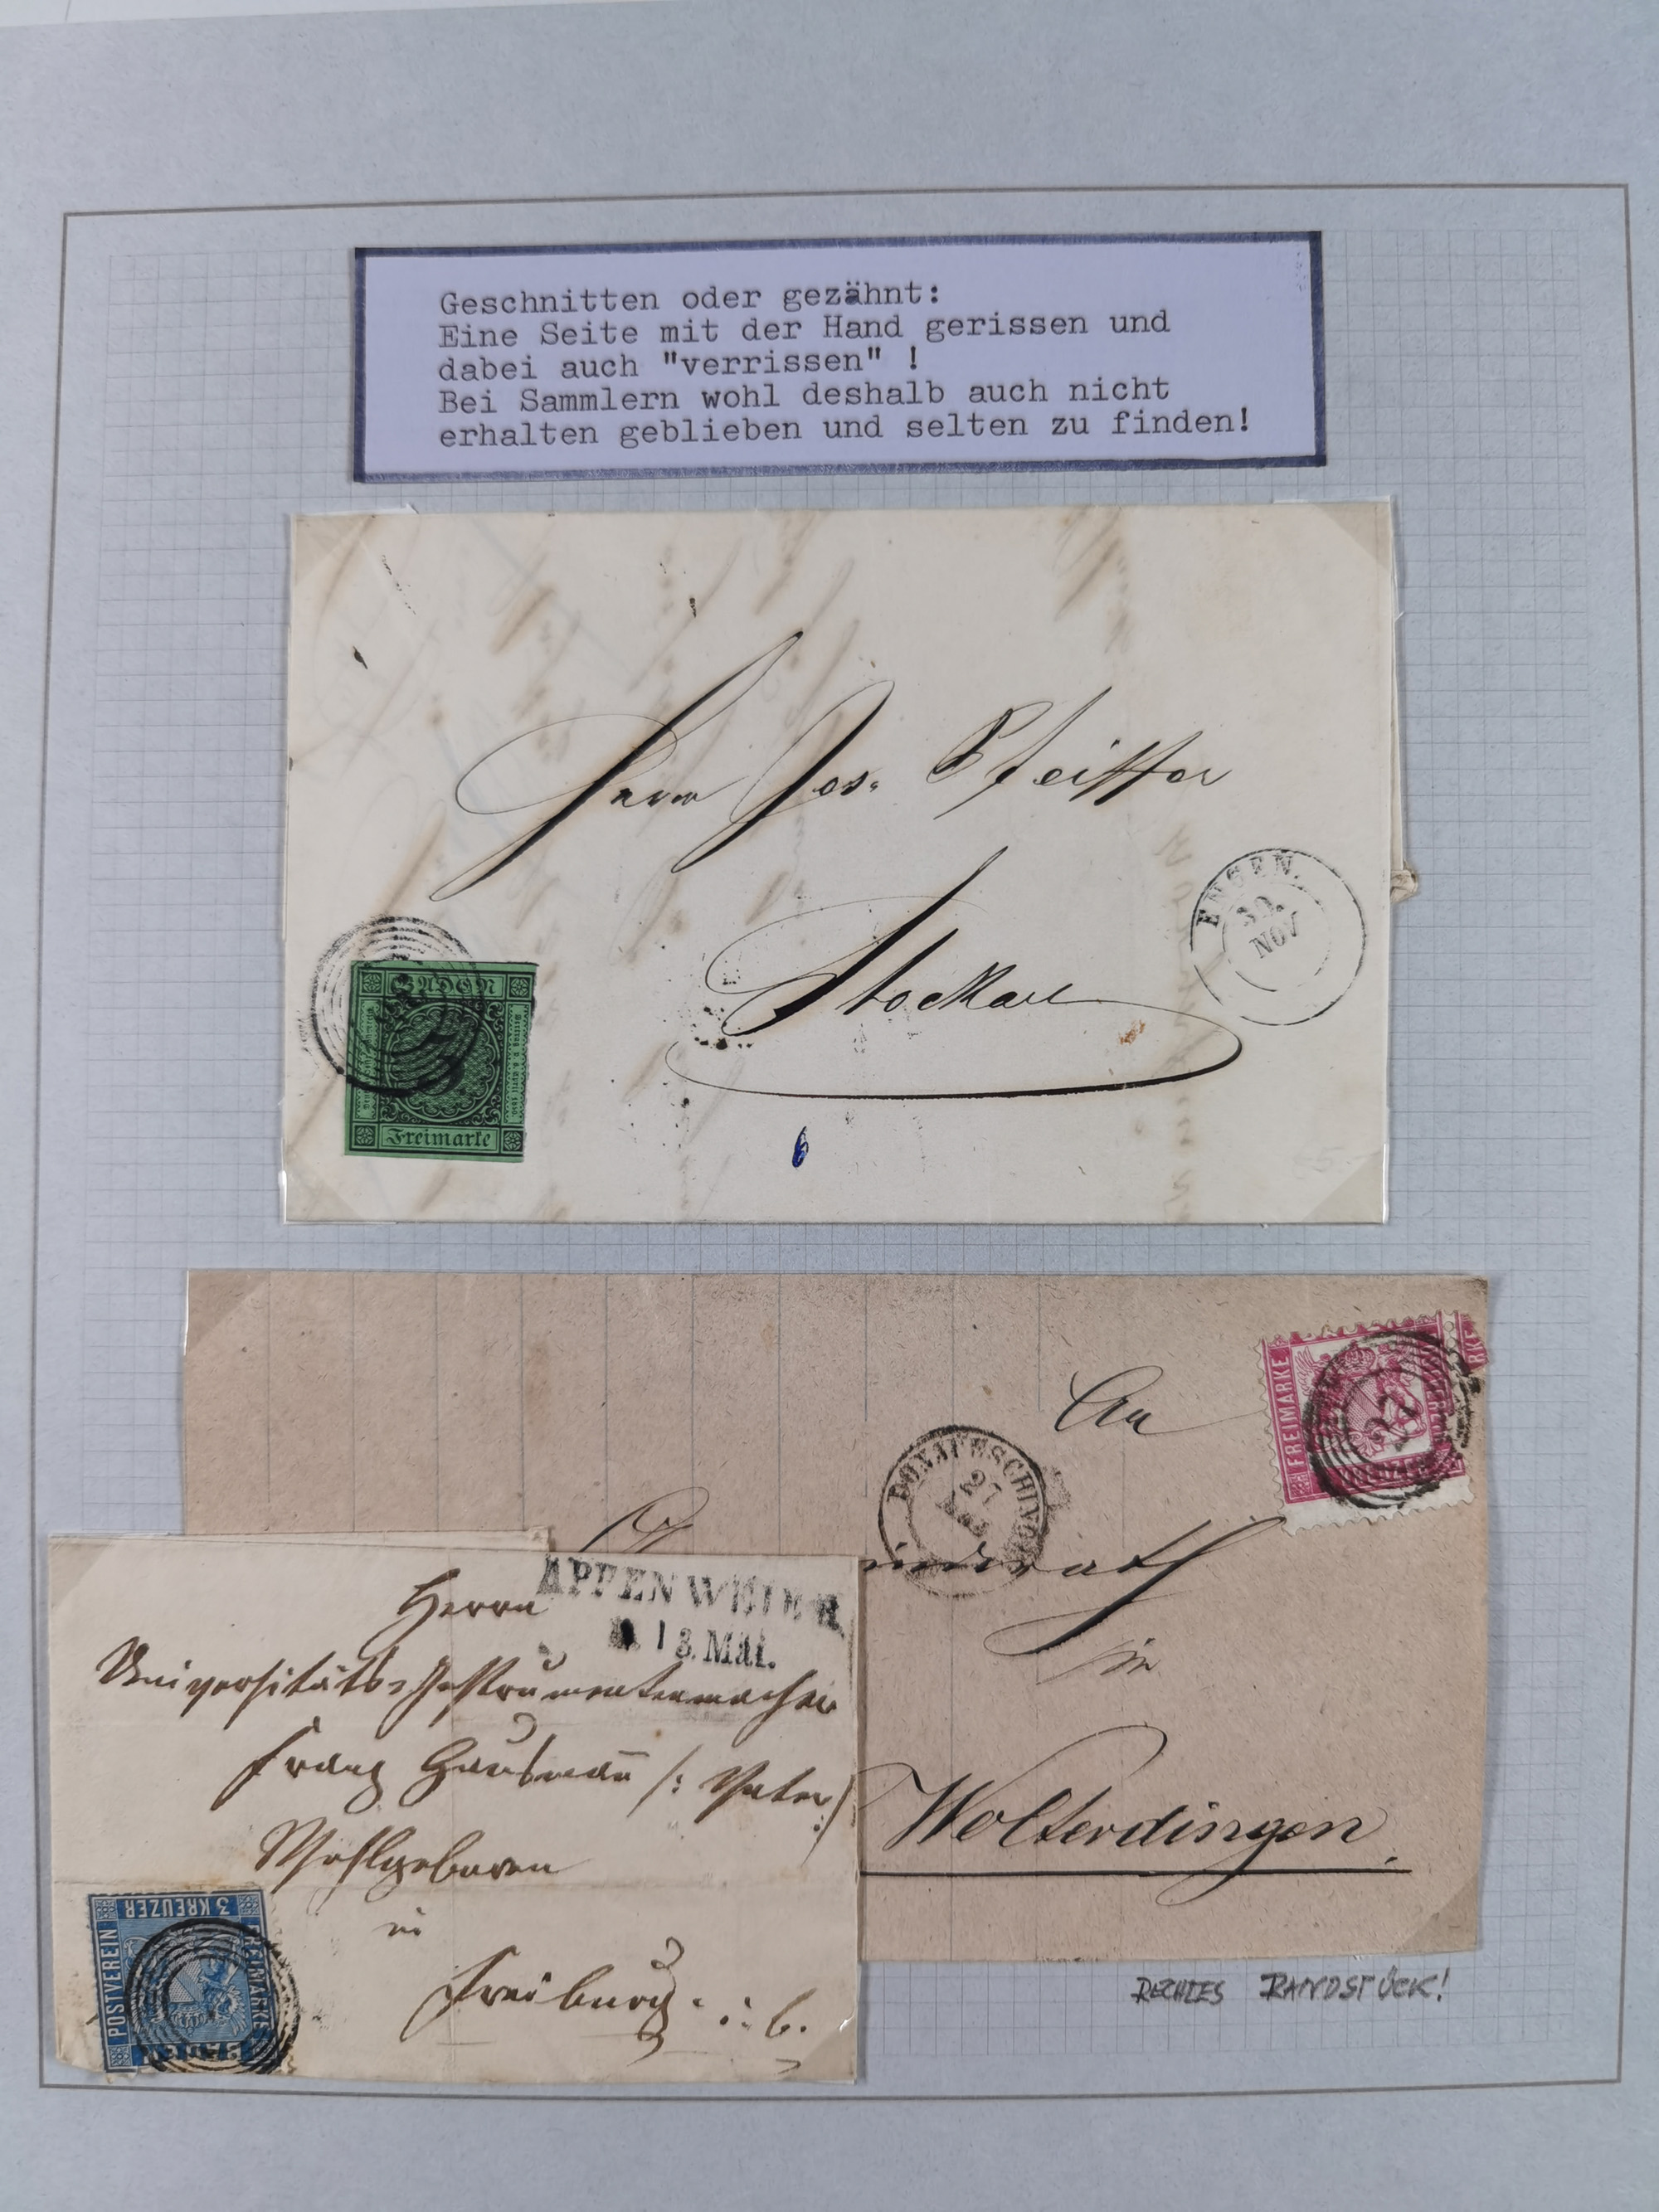 Geschnitten oder gezähnt:
Eine Seite mit der Hand gerissen und
dabei auch "verrissen" !
Bei Sammlern wohl deshalb auch nicht
erhalten geblieben und selten zu finden!
Herrn Jos. Pfeiffer
ENGEN.
30.
NOV
Stockach
BADEN
Freimarke
6
FREIMARKE
RKE
27
An
DONAUESCHINGEN
27
in
Wolterdingen.
APPENWEIER
18. Mai.
Herrn
Universitäts-Instrumentenmacher
Franz Hausmann /: Vater :/
Wohlgeboren
in
Freiburg i. b.
3 KREUZER
POSTVEREIN
FREIMARKE
BADEN
RECHTES RANDSTÜCK!